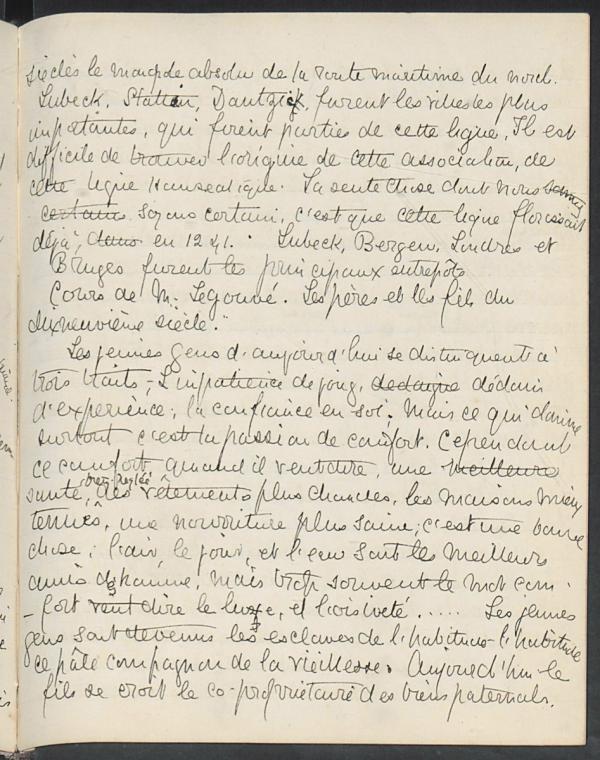 siècles le monopole absolu de la route maritime du nord.
Lubeck, Stattin, Dantzick, furent les villes les plus
impotantes, qui firent parties de cette ligue. Il est
difficile de trouver l'origine de cette association, de
cette ligue Hanseatique. La seule chose dont nous
certain soyons certain, c'est que cette ligue florissait
déjà, dans en 1241. Lubeck, Bergen, Londres et
Bruges furent les principaux entrepôts
Cours de M. Legouvé. Les pères et les fils du
dixneuvième siècle."
Les jeunes gens d'aujourd'hui se distinguent à
trois traits, L'impatience de joug, dedaigne dédain
d'expérience, la confiance en soi. Mais ce qui domine
surtout c'est la passion de comfort. Cependant
ce comfort, quand il veut dire, une meilleure
santé, des vêtements plus chaudes, les maisons mieux
tenues, une nourriture plus saine, c'est une bonne
chose; l'air, le jour, et l'eau sont les meilleurs
amis d'homme, mais trop souvent le mot com-
-fort veut dire le luxe, et l'oisiveté ..... Les jeunes
gens sont devenus les esclaves de l'habitude l'habitude
ce pâle compagnon de la vieillesse. Aujourd'hui le
fils se croit le co-propriétaire des biens paternals.